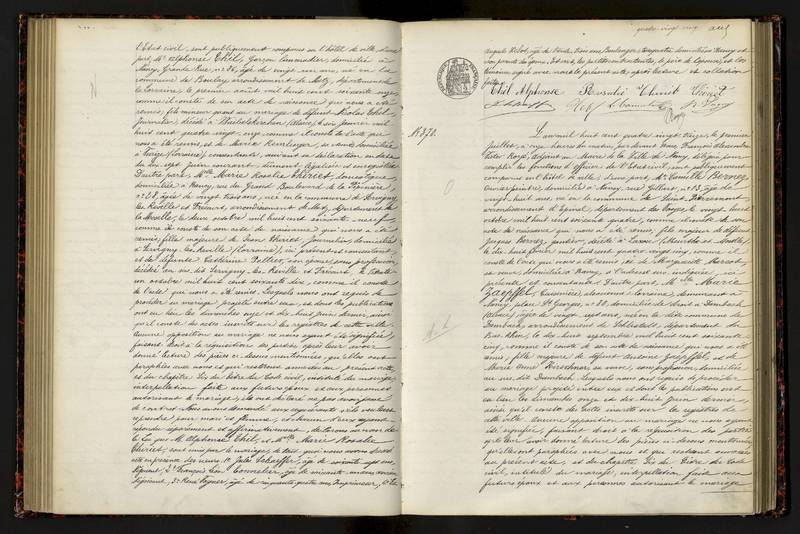 l'Etat civil, sont publiquement comparus en l'hôtel de ville, d'une
part, Mr Alphonse Thil, Garçon limonadier, domicilié à
Nancy, Grande Rue, n° 86, âgé de vingt un ans, né en la
commune de Boulay, arrondissement de Metz, département de
la Lorraine, le premier août mil huit cent soixante onze,
comme il conste de son acte de naissance que nous a été
remis, fils mineur quant au mariage de défunt Nicolas Thil
journalier, décédé à (Alsace), le six janvier mil
huit cent quatre vingt onze, comme il conste de l'acte qui
nous a été remis, et de Marie sa veuve domiciliée
à (Lorraine), consentante, suivant sa déclaration en date
du dix sept Juin courant, dûment légalisée et enregistrée
D'autre part, Melle Marie Rosalie Thiriet, domestique,
domiciliée à Nancy, rue du Grand Boulevard de la Pépinière,
n° 28, âgée de vingt trois ans, née en la commune de Servigny
les Raville et Frécourt, arrondissement de Metz, département de
la Moselle, le deux octobre mil huit cent soixante neuf
comme il conste de son acte de naissance qui nous a été
remis, fille majeure de Thiriet, Journalier, domicilié
à Servigny-les-Raville (Lorraine), ici présent et consentant,
et de défunte Catherine Pellier, son épouse, sans profession,
décédée en son dit Servigny-les-Raville et Frécourt, le trente
un octobre mil huit cent soixante dix, comme il conste
de l'acte qui nous a été remis. Lesquels nous ont requis de
procéder au mariage projeté entre eux et dont les publications
ont eu lieu les dimanches onze et dix huit Juin dernier, ainsi
qu'il conste des actes inscrits sur les registres de cette ville
Aucune opposition au mariage ne nous ayant été signifiée,
faisant droit à la réquisition des parties après leur avoir
donné lecture des pièces ci-dessus mentionnées, qu'elles ont
paraphées avec nous et qui resteront annexées au présent acte,
et du chapitre six du titre du Code civil, intitulé du mariage,
interpellation faite aux futurs époux et aux personnes
autorisant le mariage, ils ont déclaré ne pas avoir passé
de contrat. Nous avons demandé aux requérants s'ils veulent se
prendre pour mari et femme, et chacun d'eux ayant
répondu séparément et affirmativement, déclarons au nom de
la loi que Mr Alphonse Thil, et Melle Marie Rosalie
Thiriet, sont unis par le mariage, de tout quoi nous avons dressé
acte en présence des sieurs 1° Jules Schaeffer, âgé de soixante sept ans,
2° François Léon Connétier, âgé de soixante
3° René Vagner, âgé de cinquante quatre ans, Imprimeur, 4° Le
quatre vingt onze
Auguste âgé de trente trois ans Boulanger, tous quatre domiciliés à Nancy et
non parents des époux. Et ont, les parties contractantes, le père de l'épouse, et les
témoins signé avec nous le présent acte, après lecture et collation
faites.
Thil Alphonse Rosalie Thiriet Thiriet
N° 378.
L'an mil huit cent quatre vingt treize, le premier
Juillet, à heures du matin, par devant nous, François Alexandre
Victor adjoint au Maire de la Ville de Nancy, délégué pour
remplir les fonctions d'Officier de l'Etat civil, sont publiquement
comparus en l'hôtel de ville, d'une part, Mr Camille Bernez
domicilié à Nancy, rue Gilbert, n° 13, âgé de
vingt huit ans, né en la commune de
arrondissement d'Epinal, département des Vosges, le vingt huit
octobre mil huit cent soixante quatre, comme il conste de son
acte de naissance qui nous a été remis, fils majeur de défunt
Jacques Bernez, décédé à Laxou, (Meurthe et Moselle),
le dix huit cent quatre vingt cinq, comme il
conste de l'acte qui nous a été remis, et de Marguerite
sa veuve domiciliée à Nancy, à l'adresse sus indiquée, ici
présente et consentante D'autre part, Melle Marie
Zaepffel, Cuisinière, domiciliée de fait à
Nancy, place St Georges, n° 80, domiciliée de droit à Dambach
(Alsace), âgée de vingt sept ans, née en la dite commune de
Dambach, arrondissement de Schlestadt, département du
Bas-Rhin, le dix huit septembre mil huit cent soixante
cinq, comme il conste de son acte de naissance qui nous a été
remis, fille majeure de défunt Antoine Zaepffel, et de
Marie Anne Kirschner sa veuve, sans profession, domiciliée
au sus dit Dambach. Lesquels nous ont requis de procéder
au mariage projeté entre eux et dont les publications ont
eu lieu les dimanches onze et dix huit Juin dernier,
ainsi qu'il conste des actes inscrits sur les registres de
cette ville Aucune opposition au mariage ne nous ayant
été signifiée, faisant droit à la réquisition des parties
après leur avoir donné lecture des pièces ci-dessus mentionnées
qu'elles ont paraphées avec nous et qui resteront annexées
au présent acte, et du chapitre six du titre du Code
civil, intitulé du mariage, interpellation faite aux
futurs époux et aux personnes autorisant le mariage